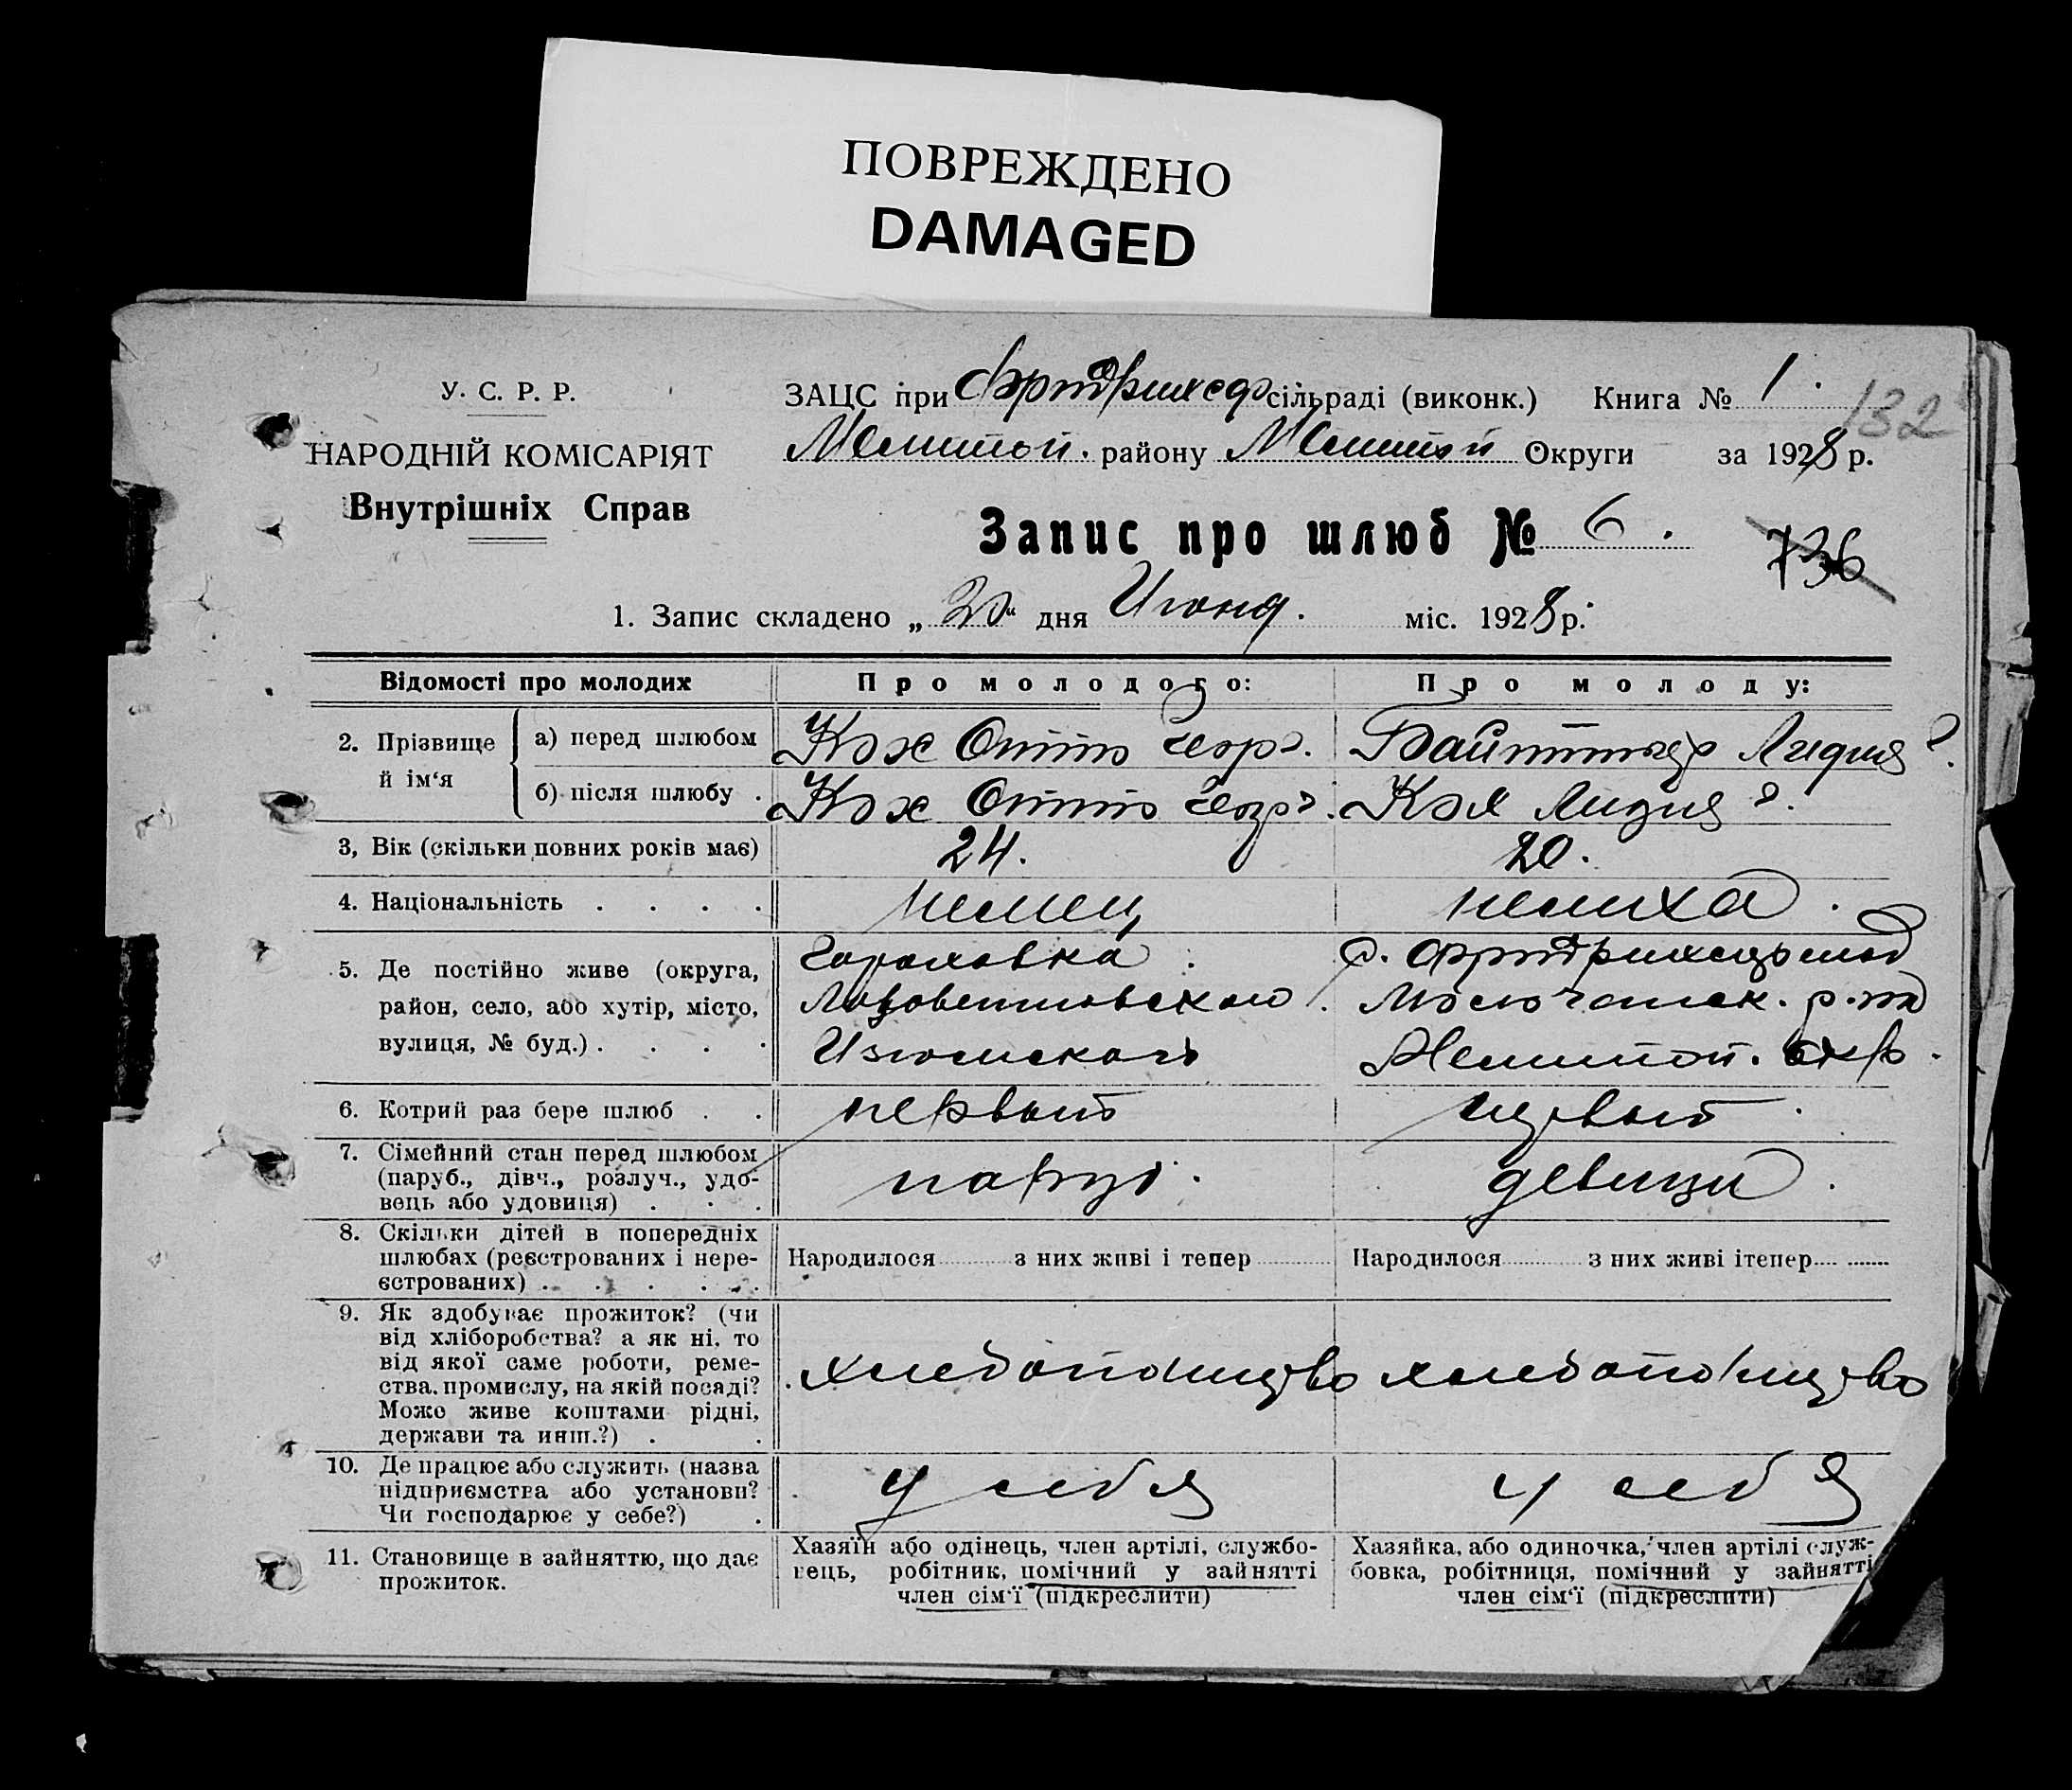 ПОВРЕЖДЕНО
DAMAGED
У. С. Р. Р.
НАРОДНІЙ КОМІСАРІЯТ
Внутрішніх Справ
ЗАЦС при Фридрихсф сільраді (виконк.) Книга № 1.
132
Мелитоп. району Мелитоп Округи за 1928 р.
Запис про шлюб № 6.
736
1. Запис складено „30“ дня Июня. міс. 1928 р.
Відомості про молодих Про молодого: Про молоду:
2. Прізвище й ім‘я
а) перед шлюбом Кох Отто Георг. Лидия Г.
б) після шлюбу . Кох Отто Георг. Кох Лидия Г.
3, Вік (скільки повних років має) 24. 20.
4. Національність . . . . немец немка.
5. Де постійно живе (округа,
район, село, або хутір, місто,
вулиця, № буд.) . . . .
Гороховка
Изюмского
с.
Молочанск. р-на
Мелитоп. окр.
6. Котрий раз бере шлюб . . первый первый.
7. Сімейний стан перед шлюбом
(паруб., дівч., розлуч., удо-
вець або удовиця) . . .
паруб. девица.
8. Скільки дітей в попередніх
шлюбах (реєстрованих і нере-
єстрованих) . . . . . .
Народилося з них живі і тепер Народилося з них живі ітепер
9. Як здобуває прожиток? (чи
від хліборобства? а як ні, то
від якої саме роботи, реме-
ства, промислу, на якій посаді?
Може живе коштами рідні,
держави та инш.?) . .
хлебопашество хлебопашество
10. Де працює або служить (назва
підприємства або установи?
Чи господарює у себе?) .
у себя у себя
11. Становище в зайняттю, що дає
прожиток.
Хазяїн або одінець, член артілі, службо-
вець, робітник, помічний у зайнятті
член сім‘ї (підкреслити)
Хазяйка, або одиночка, член артілі служ-
бовка, робітниця, помічний у зайнятті
член сім‘ї (підкреслити)